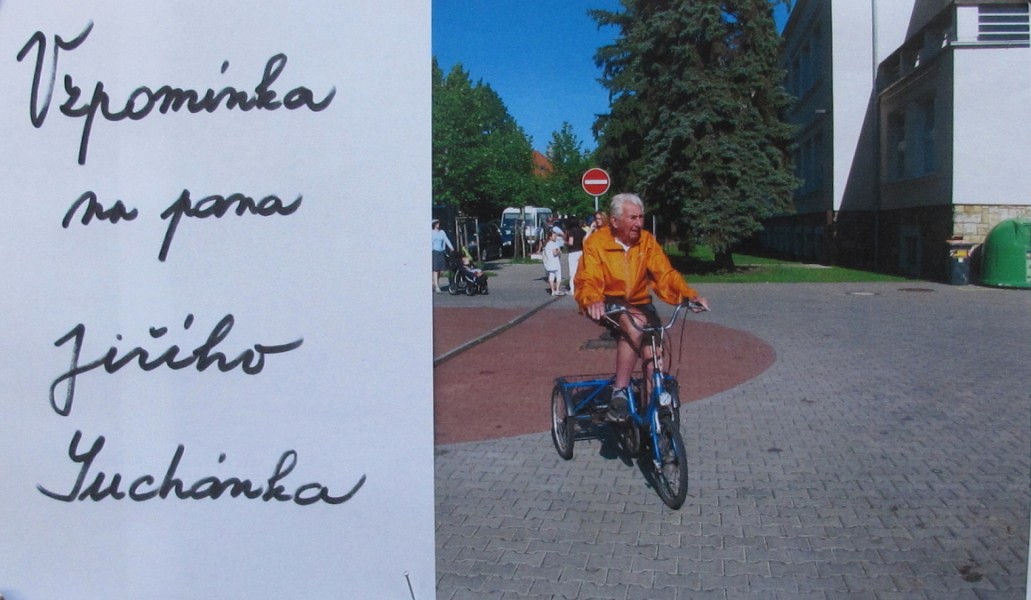 Vzpomínka
na pana
Jiřího
Suchánka